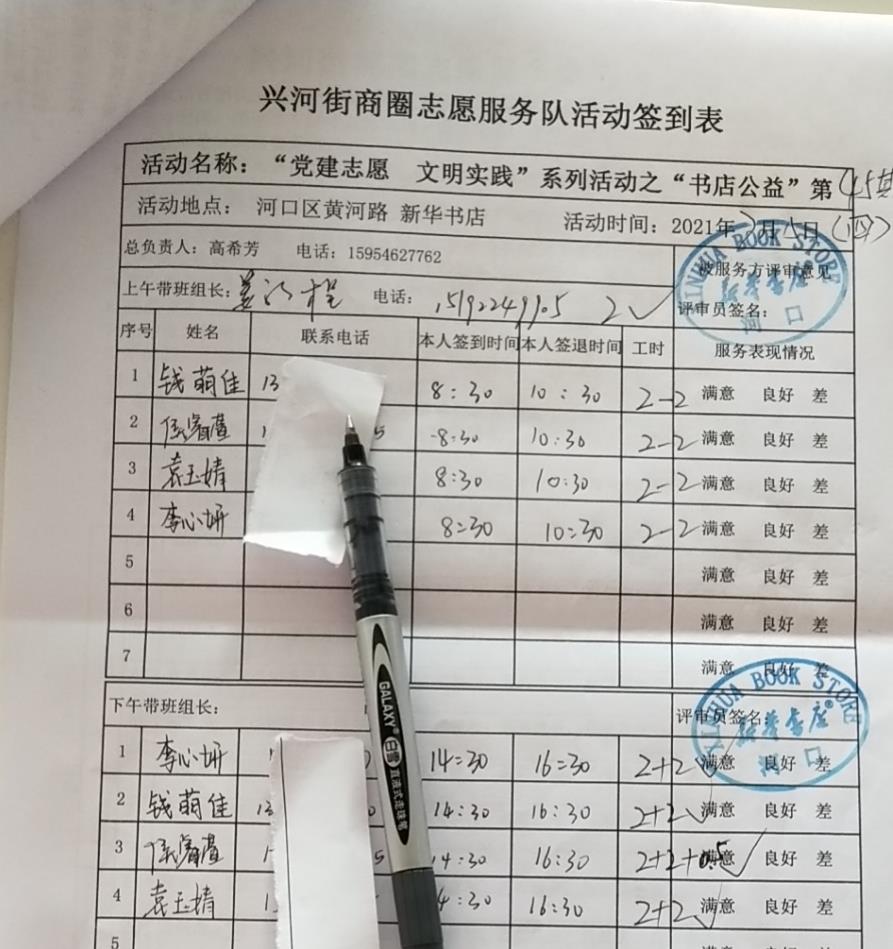 兴河街商圈志愿服务队活动签到表
活动名称：“党建志愿 文明实践”系列活动之“书店公益”第(45其
活动地点： 河口区黄河路 新华书店 活动时间：2021年 月15日(四)
总负责人：高希芳 电话：15954627762 被服务方评审意见
上午带班组长： 电话： 2✓ 评审员签名：
序号 姓名 联系电话 本人签到时间 本人签退时间 工时 服务表现情况
1 钱萌佳 13 8:30 10:30 2-2 满意 良好 差
2 5 8:30 10:30 2-2 满意 良好 差
3 袁玉婧 8:30 10:30 2-2 满意 良好 差
4 李心妍 8:30 10:30 2-2 满意 良好 差
5 满意 良好 差
6 满意 良好 差
7 满意 良好 差
下午带班组长： 评审员签名：
1 李心妍 14:30 16:30 2+2✓ 满意 良好 差
2 钱萌佳 13 0 14:30 16:30 2+2✓ 满意 良好 差
3 5 14:30 16:30 2+2+0.5✓ 满意 良好 差
4 袁玉婧 4:30 16:30 2+2✓ 满意 良好 差
5
XINHUA BOOK STORE
新华书店
河口
XINHUA BOOK STORE
新华书店
河口
GALAXY® 白雪 直液式走珠笔